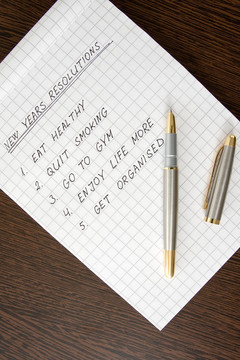 NEW YEARS RESOLUTIONS...
1. EAT HEALTHY
2. QUIT SMOKING
3. GO TO GYM
4. ENJOY LIFE MORE
5. GET ORGANISED